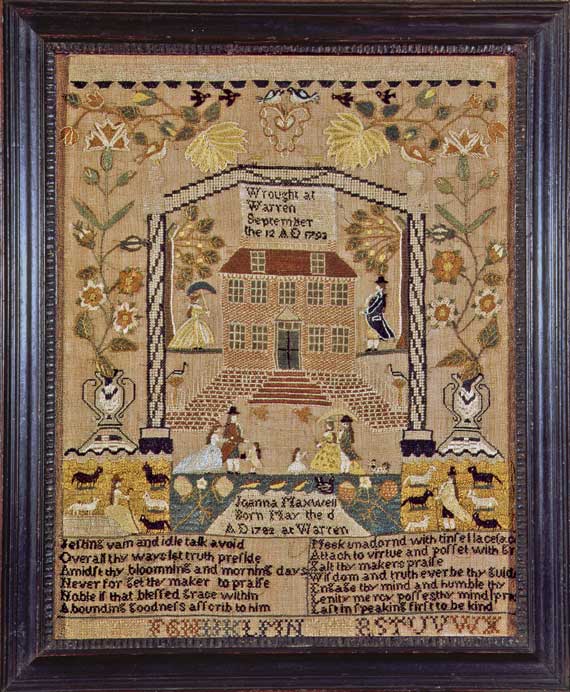 Wrought at
Warren
September
the 12 A D 1793
Joanna Maxwell
Born May the 6
A D 1782 at Warren
Jesting vain and idle talk avoid
Overall thy ways let truth preside
Amidst thy bloomning and morning days
Never for get thy maker to praise
Noble is that blessed Grace within
Abounding goodness ascrib to him
Meek unadornd with tinsel lace
Attach to virtue and posset with
thy makers praise
Wisdom and truth ever be thy guide
Engage thy mind and humble thy
Lenity mercy posses thy mind
Last in speaking first to be kind
FGHIKLMN RSTUVWX